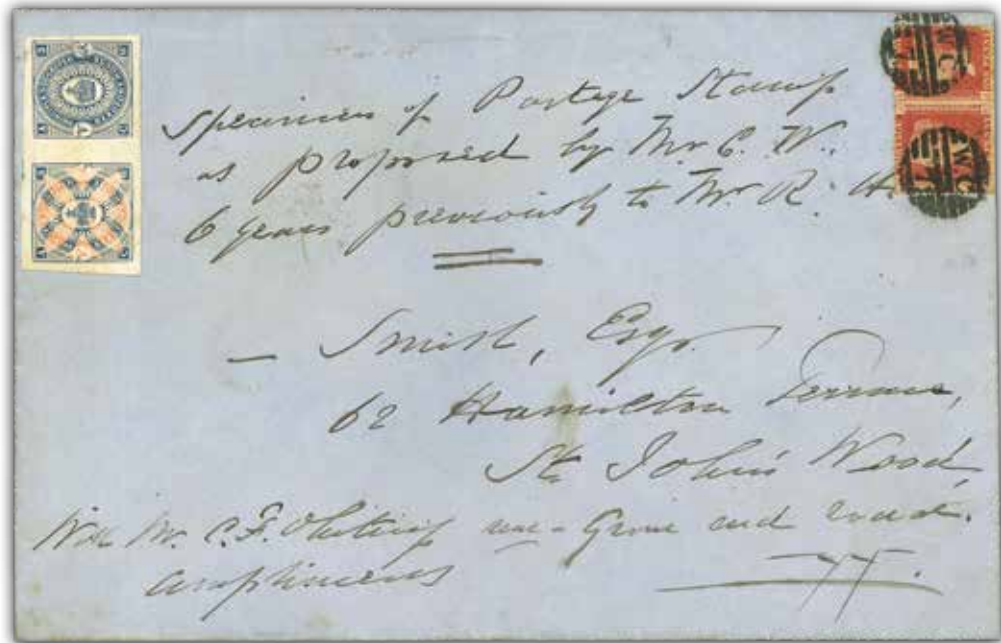 Specimen of Postage Stamp
as proposed by Mr. C. W.
6 years previously to Mr. R. H.
— Smith, Esqr.
62 Hamilton Terrace,
St. John's Wood,
With Mr. C. F. Whiting near - Grove end road.
compliments
WC
7
WC
7